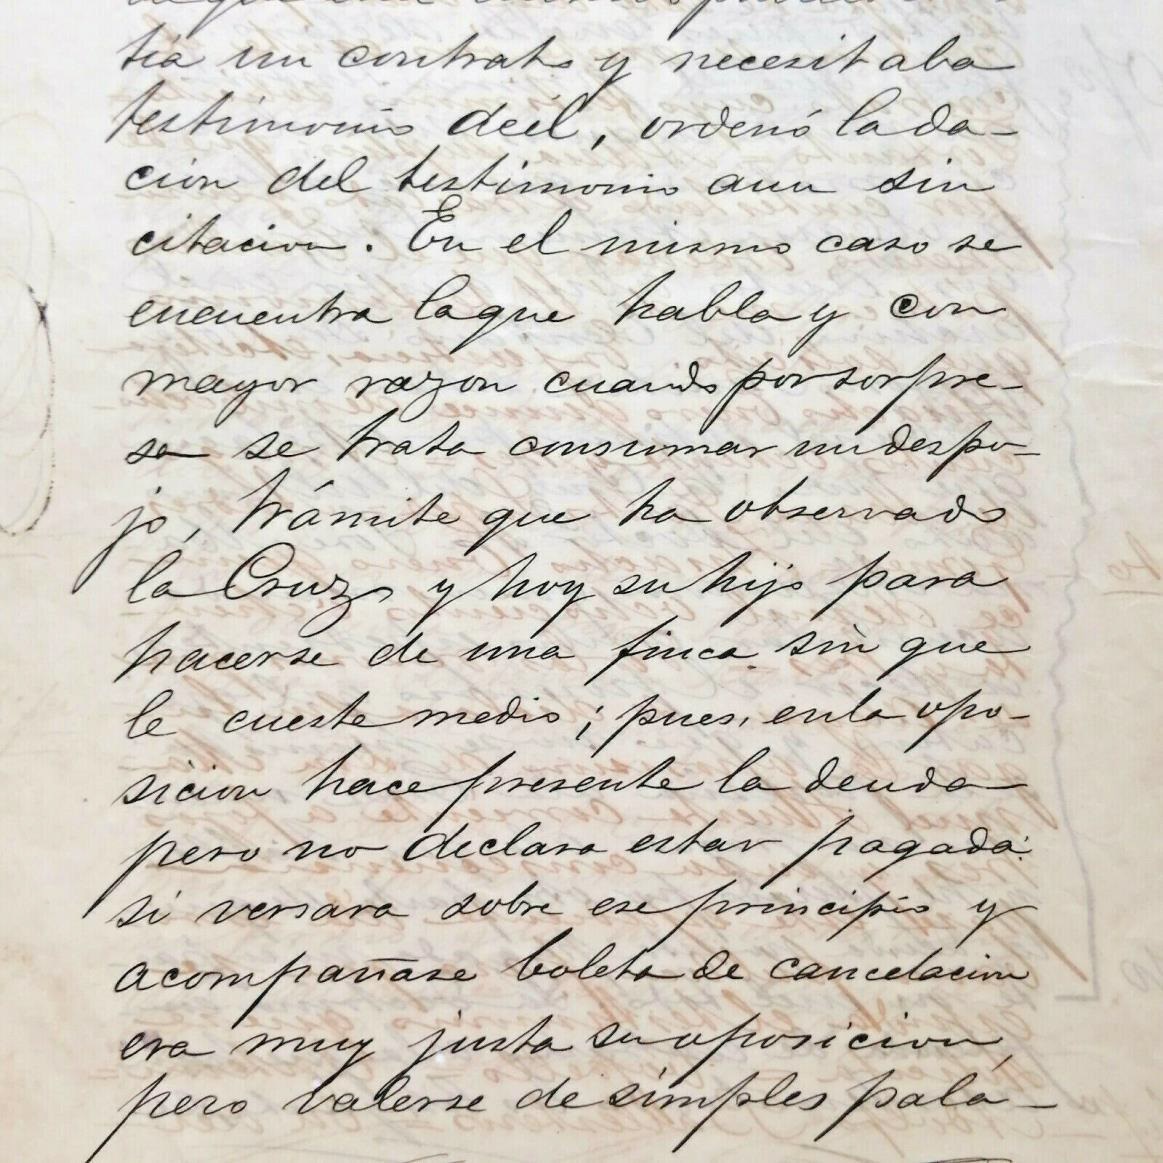 tía un contrato y necesitaba
testimonio deél, ordenó lada-
cion del testimonio aun sin
citacion. En el mismo caso se
encuentra laque habla y con
mayor razon cuando porsorpre-
sa se trata consumar undespo-
jo, trámite que ha observado
la Cruz, y hoy suhijo para
hacerse de una finca sin que
le cueste medio; pues, enla opo-
sicion hace presente la deuda
pero no declara estar pagada:
si versara sobre ese principio y
acompañase boleta de cancelacion
era muy justa suoposicion,
pero valerse desimples pala-